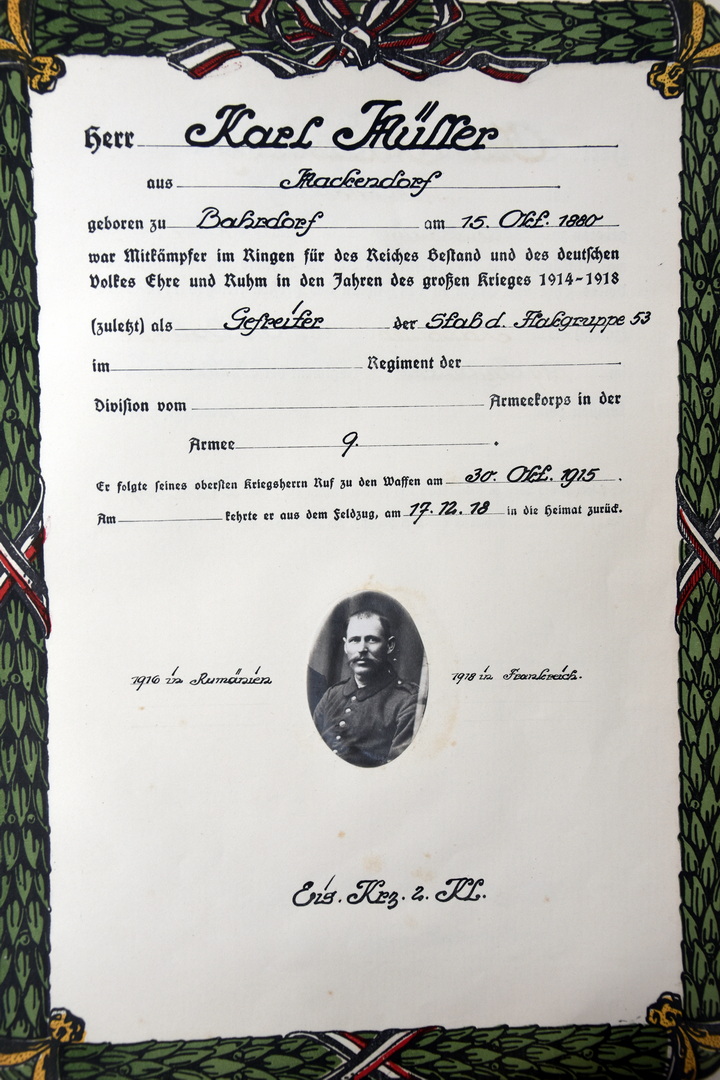 Herr Karl Müller
aus Mackendorf
geboren zu Bahrdorf am 15. Okt. 1880
war Mitkämpfer im Ringen für des Reiches Bestand und des deutschen
Volkes Ehre und Ruhm in den Jahren des großen Krieges 1914-1918
(zuletzt) als Gefreiter der Stab d. Flakgruppe 53
im Regiment der
Division vom Armeekorps in der
Armee 9.
Er folgte seines obersten Kriegsherrn Ruf zu den Waffen am 30. Okt. 1915.
Am kehrte er aus dem Feldzug, am 17.12.18 in die Heimat zurück.
1916 in Rumänien
1918 in Frankreich.
Eis. Krz. 2. Kl.